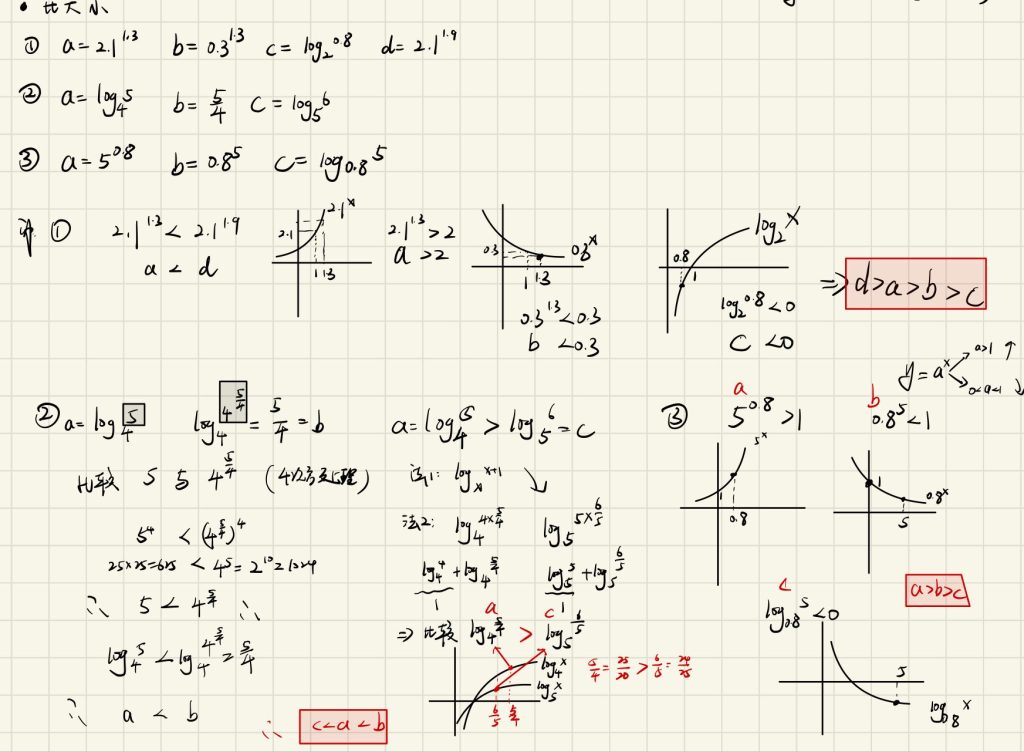 • 比大小
① a=2.1^1.3 b=0.3^1.3 c=log₂^0.8 d=2.1^1.9
② a=log₄^5 b=5/4 c=log₅^6
③ a=5^0.8 b=0.8^5 c=log_0.8^5
① 2.1^1.3 < 2.1^1.9
a < d
2.1^x
2.1
1 1.3
2.1^1.3 > 2
a > 2
0.3
0.3^x
1 1.3
0.3^1.3 < 0.3
b < 0.3
log₂^x
0.8
1
log₂^0.8 < 0
c < 0
⇒ d>a>b>c
y=a^x
a>1 ↑
0<a<1 ↓
② a=log₄^5 log₄^4^5/4 = 5/4 = b
比较 5 与 4^5/4 (4次方处理)
5^4 < (4^5/4)^4
25×25=625 < 4^5=2^10=1024
∴ 5 < 4^5/4 ∴
log₄^5 < log₄^4^5/4 = 5/4
∴ a < b
∴ c<a<b
a=log₄^5 > log₅^6=c
法1: log_x^x+1 ↘
法2: log₄^4×5/4 log₅^5×6/5
log₄^4+log₄^5/4 log₅^5+log₅^6/5
1 1
a c
⇒ 比较 log₄^5/4 > log₅^6/5
log₄^x
log₅^x
6/5 5/4
5/4=25/20>6/5=24/25
③ a
5^0.8>1
5^x
1
0.8
b
0.8^5<1
1
0.8^x
5
a>b>c
c
log_0.8^5<0
5
log_0.8^x